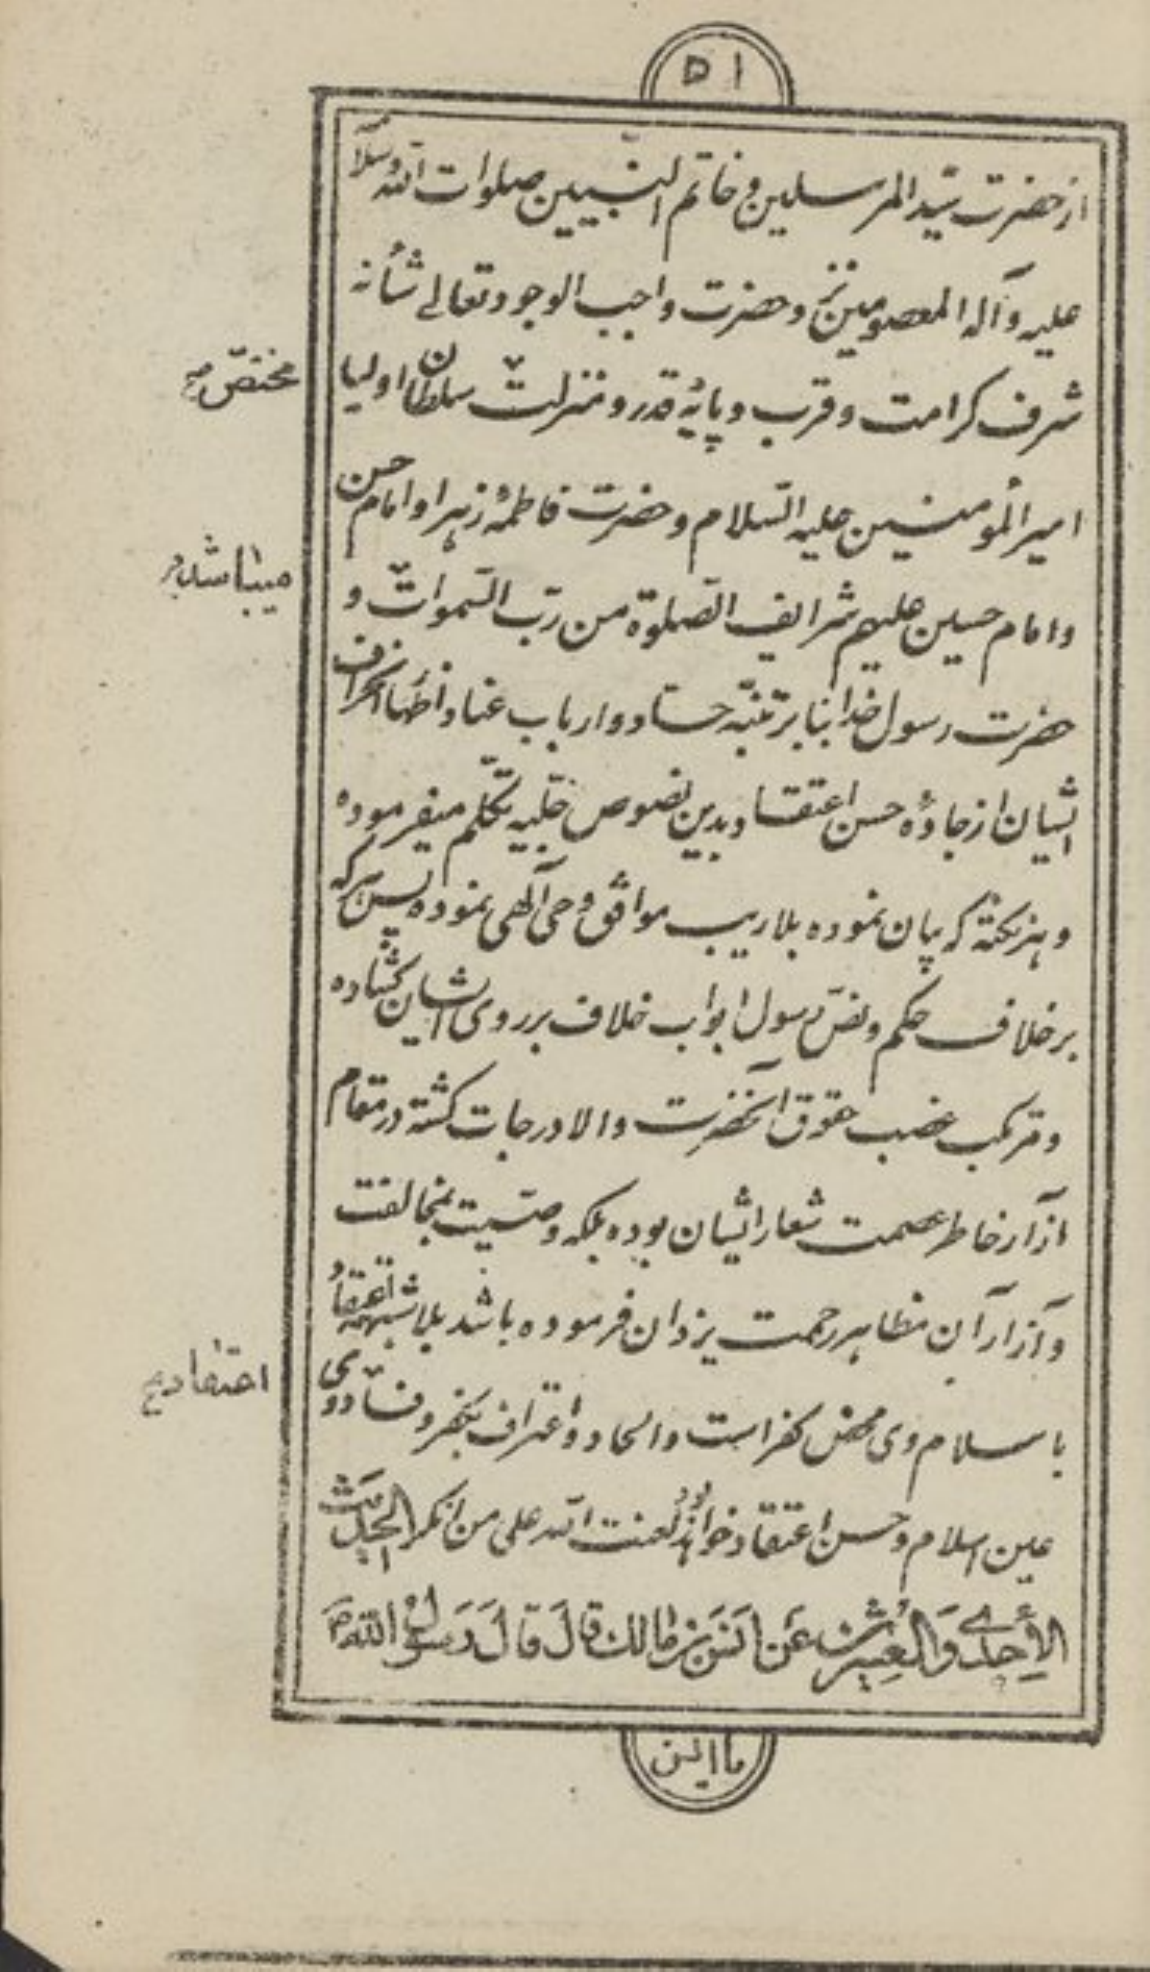 ۵۱
از حضرت سیّد المرسلین و خاتم النّبیین صلوات اللّه و سلامه
علیه و آله المعصومین نزد حضرت واجب الوجود تعالی شأنه
شرف کرامت و قرب و پایهٔ قدر و منزلت سلطان اولیا
مختصّ
امیر المؤمنین علیه السّلام و حضرت فاطمهٔ زهرا و امام حسن
و امام حسین علیهم شرایف الصّلوة من ربّ السّموات و
میباشد
حضرت رسول خدا بنابر تنبّه حسّاد و ارباب عناد و اظهار انحراف
ایشان از جادهٔ حسن اعتقاد بدین نصوص جلیّه تکلّم میفرموده
و هر نکتهٔ که بیان نموده بلاریب موافق وحی آلهی نموده پس هرکه
بر خلاف حکم و نصّ رسول ابواب خلاف بر روی ایشان کشاده
و مرتکب غصب حقوق آنحضرت والا درجات کشته در مقام
ازآر خاطر عصمت شعار ایشان بوده بلکه وصّیت بمخالفت
و آزار آن مظاهر رحمت یزدان فرموده باشد بلا شبهه اعتقاد
باسلام وی محض کفر است و الحاد و اعتراف بکفر و فساد وی
اعتقاد
عین اسلام و حسن اعتقاد خواهد بود لعنت اللّه علی من انکر الحدیث
الأحدی والعشرون عن انس بن مالك قال قال رسول الله
ما من